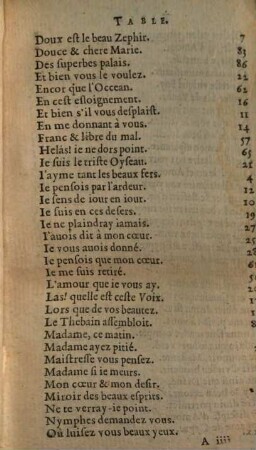 TABLE.
Doux est le beau Zephir. 7
Douce & chere Marie. 83
Des superbes palais. 86
Et bien vous le voulez. 22
Encor que l'Occean. 62
En cest esloignement. 16
Et bien s'il vous desplaist. 11
En me donnant à vous. 14
Franc & libre du mal. 57
Helas! ie ne dors point. 65
Ie suis le triste Oyseau.
I'ayme tant les beaux fers. 4
Ie pensois par l'ardeur.
Ie sens de iour en iour.
Ie suis en ces desers.
Ie ne plaindray iamais.
I'auois dit à mon cœur.
Ie vous auois donné.
Ie pensois que mon cœur.
Ie me suis retiré.
L'amour que ie vous ay.
Las! quelle est ceste Voix.
Lors que de vos beautez.
Le Thebain assembloit.
Madame, ce matin.
Madame ayez pitié.
Maistresse vous pensez.
Madame si ie meurs.
Mon cœur & mon desir.
Miroir des beaux esprits.
Ne te verray-ie point.
Nymphes demandez vous.
Où luisez vous beaux yeux.
A iiii